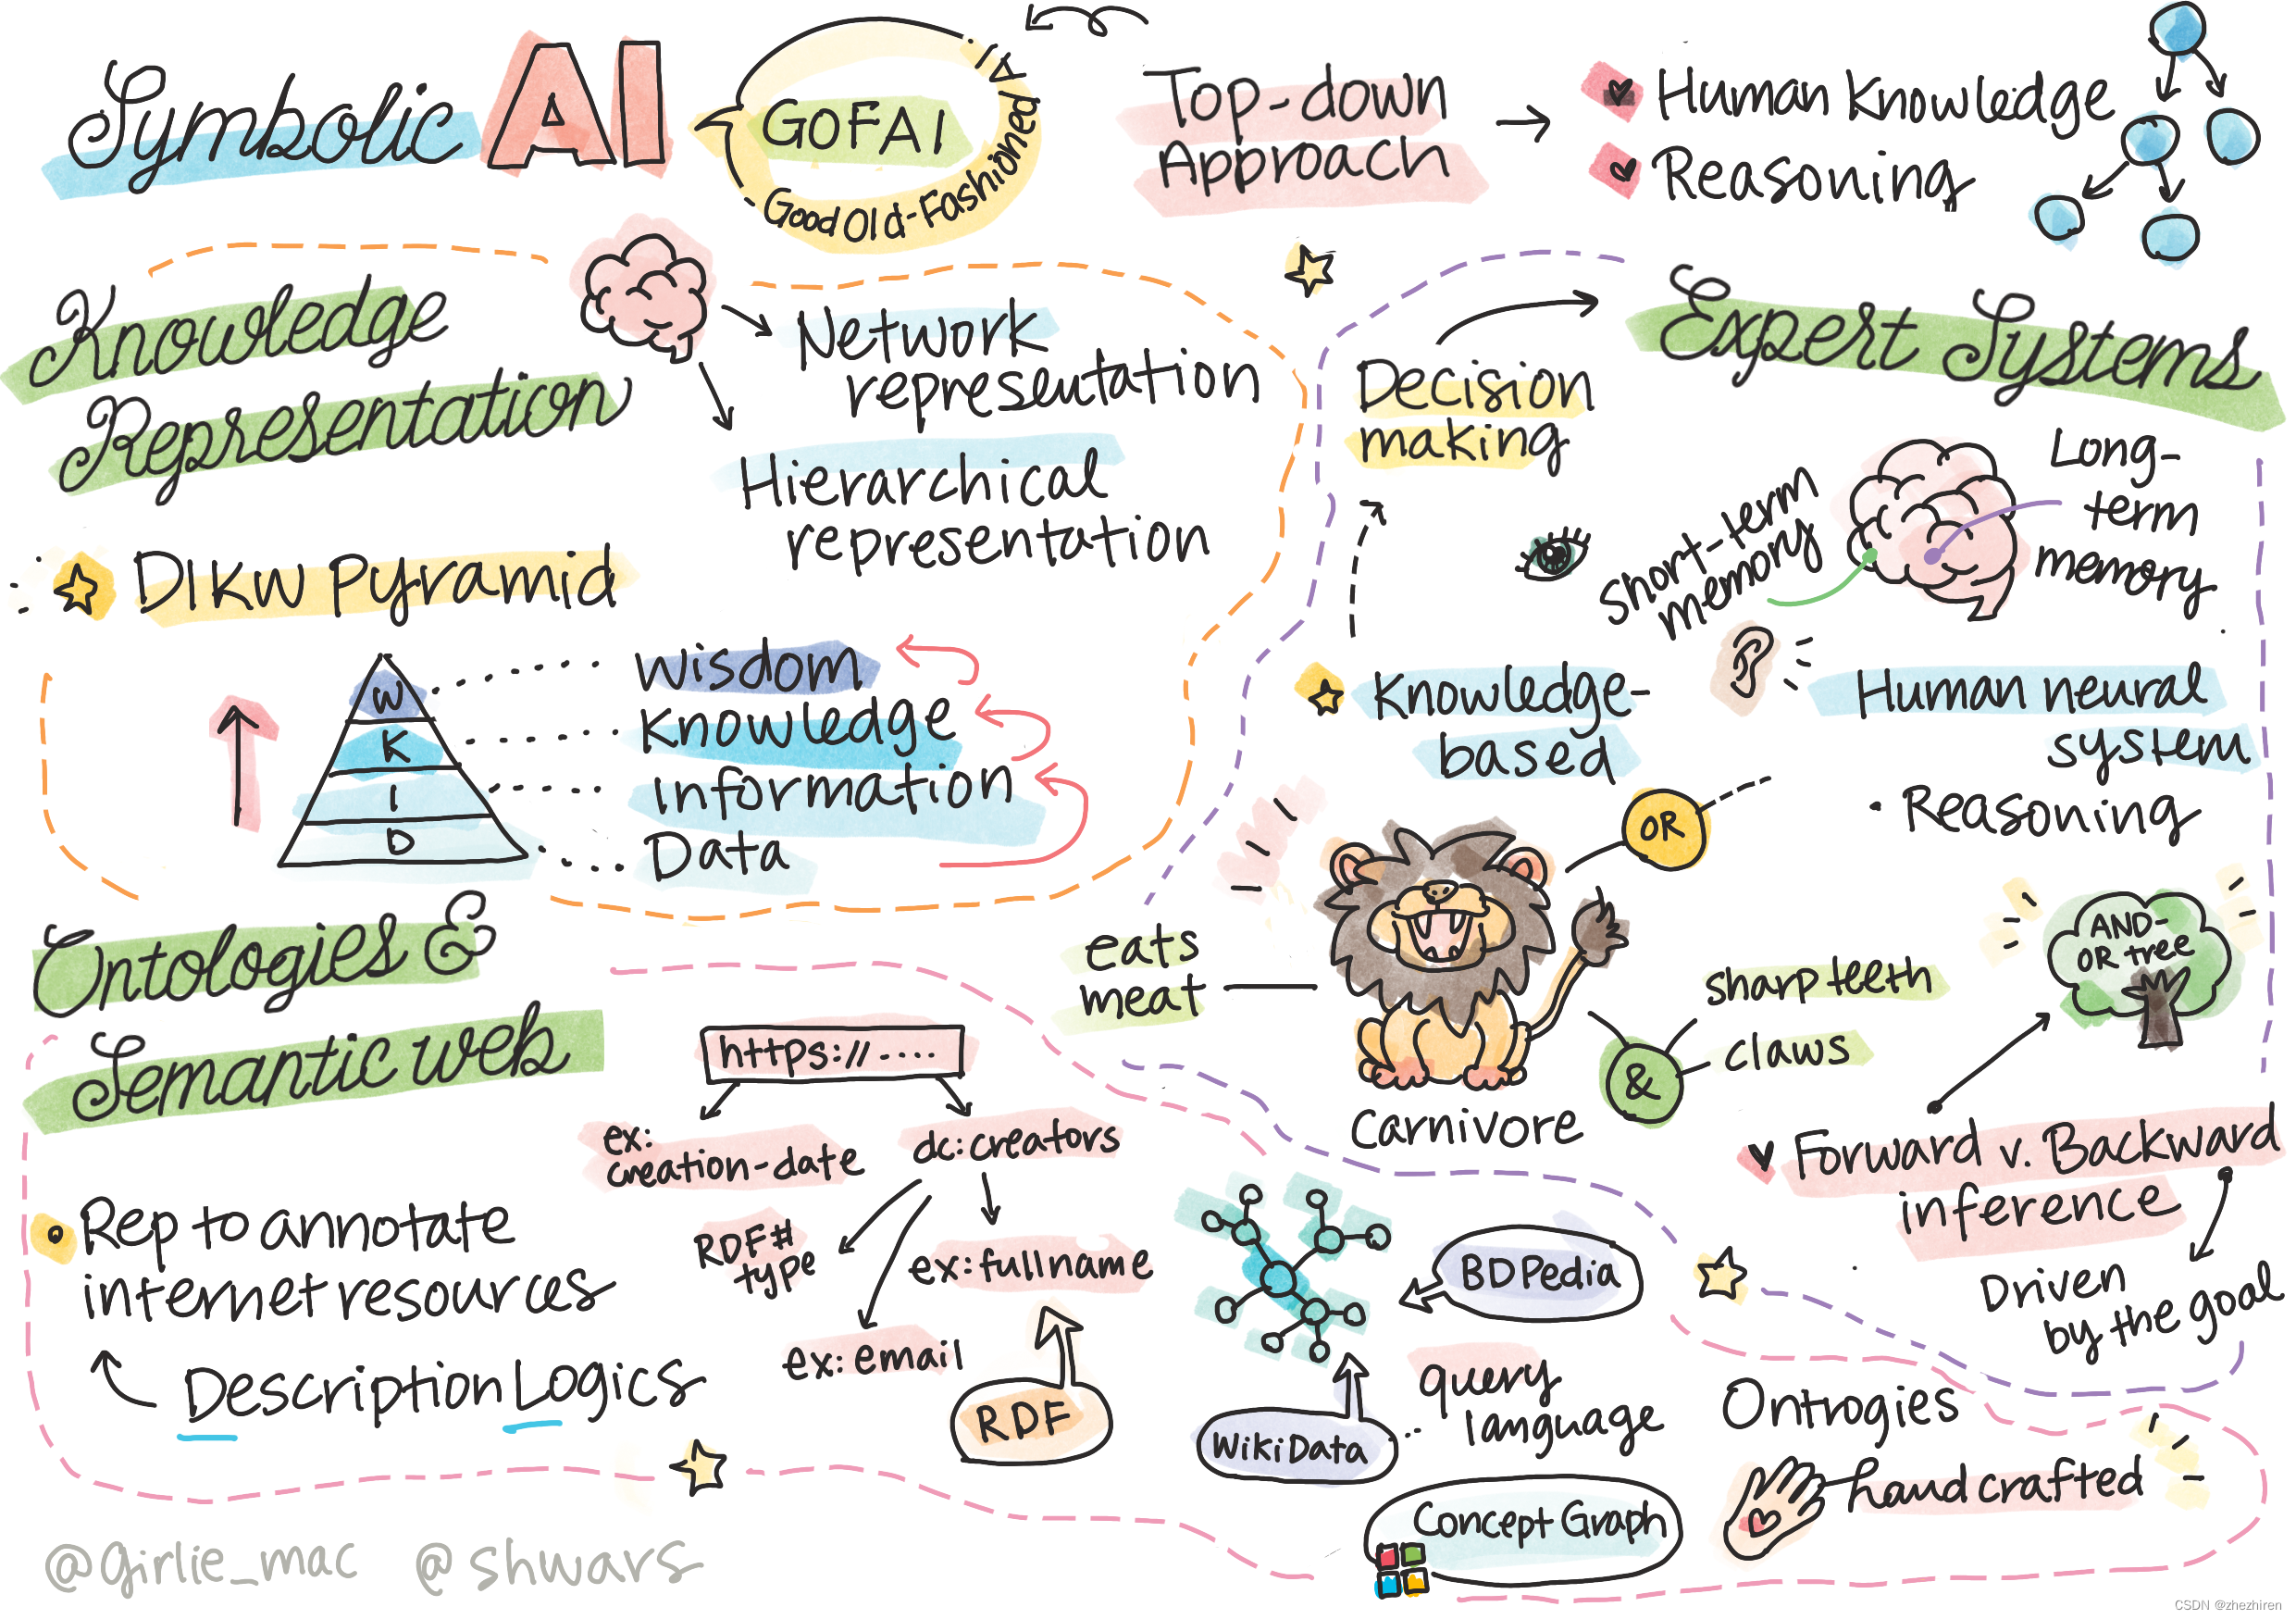 Symbolic AI
GOFAI
Good Old-Fashioned AI
Top-down
Approach
Human Knowledge
Reasoning
Knowledge
Representation
Network
representation
Hierarchical
representation
DIKW Pyramid
W
K
I
D
Wisdom
Knowledge
Information
Data
Expert Systems
Decision
making
Short-term
memory
Long-
term
memory
Knowledge-
based
Human neural
system
• Reasoning
OR
eats
meat
sharp teeth
claws
&
Carnivore
AND-
OR tree
Forward v. Backward
inference
Driven
by the goal
Ontologies &
Semantic web
https://....
ex:
creation-date
dc:creators
RDF#
type
ex:fullname
ex:email
RDF
Rep to annotate
internet resources
Description Logics
BDPedia
WikiData
query
language
Concept Graph
Ontrogies
handcrafted
@girlie_mac @shwars
CSDN @zhezhiren